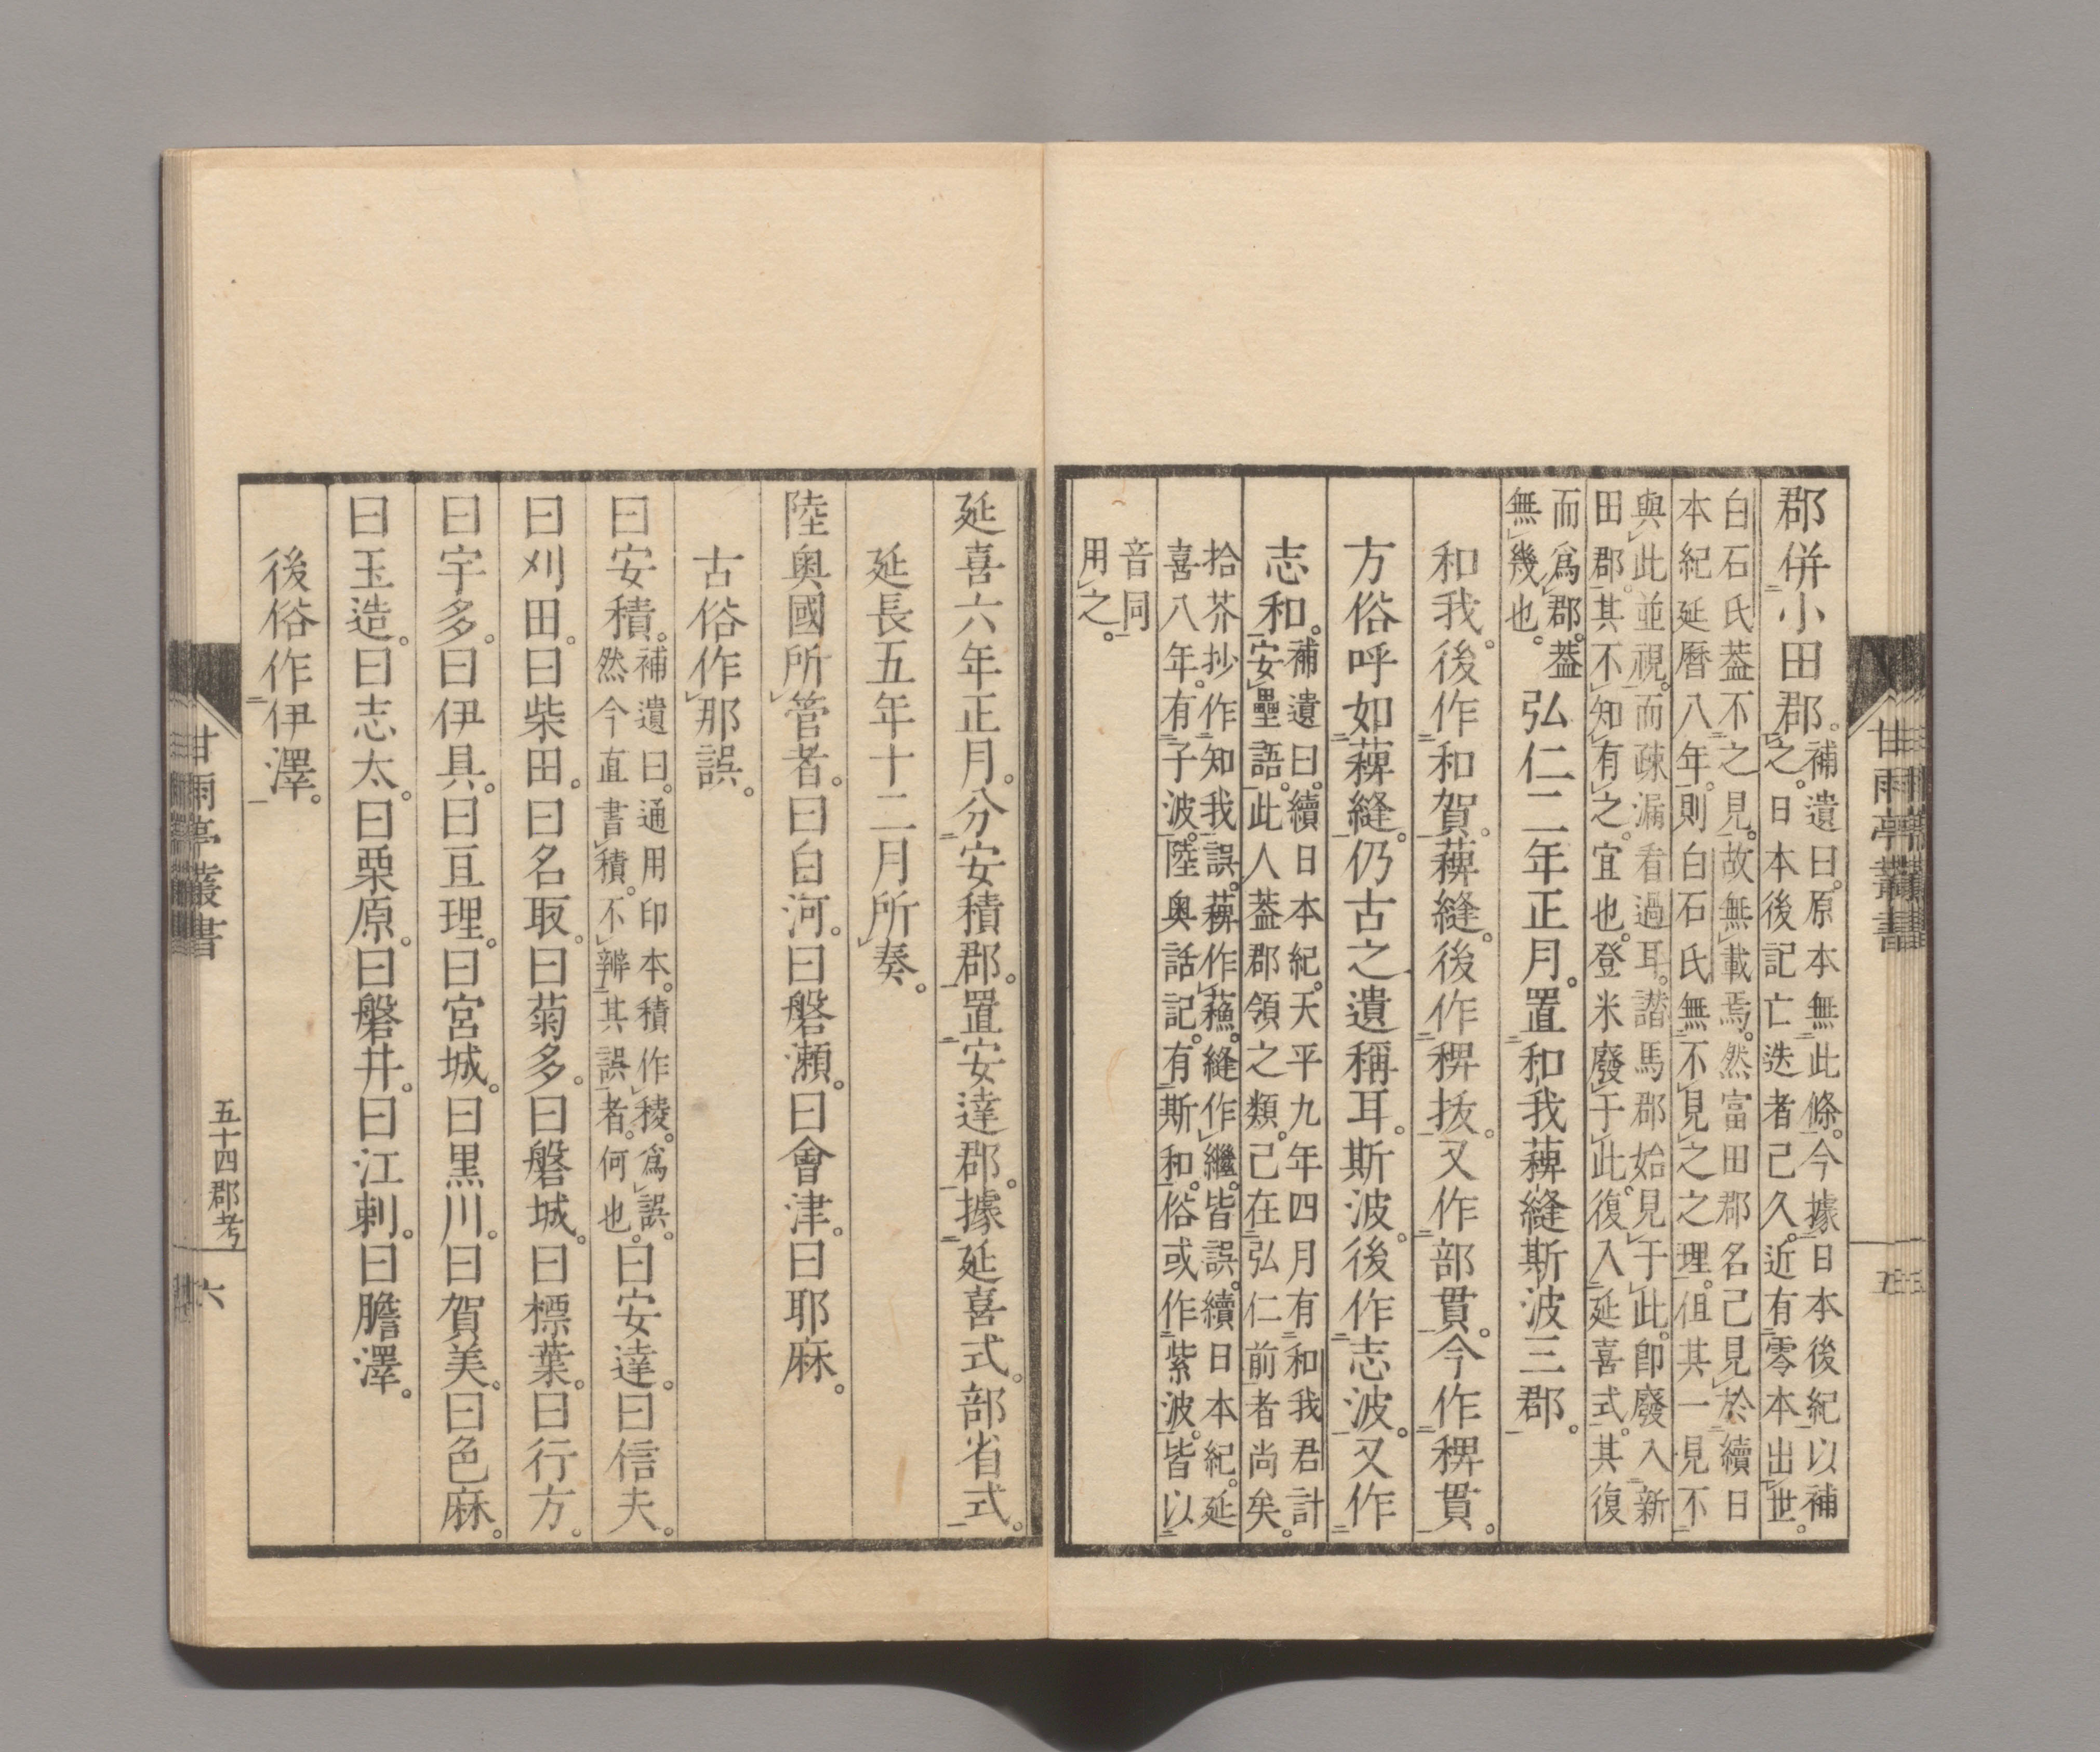 郡併小田郡。補遺曰。原本無此條。今據日本後紀以補
之。日本後記亡迭者已久。近有零本出世。
白石氏葢不之見。故無載焉。然富田郡名已見於續日
本紀延曆八年。則白石氏無不見之之理。但其一見不
與此並視。而疎漏看過耳。諧馬郡始見于此。卽廢入新
田郡。其不知有之。宜也。登米廢于此。復入延喜式。其復
而爲郡。葢
無幾也。
弘仁二年正月。置和我薭縫斯波三郡。
和我後。作和賀。薭縫。後作稗抜。又作部貫。今作稗貫。
方俗呼如薭縫。仍古之遺稱耳。斯波。後作志波。又作
志和。補遺曰。續日本紀。天平九年四月有和我君計
安壘語。此人葢郡領之類。已在弘仁前者尚矣。
拾芥抄作知我。誤。薭作蘓。縫作繼。皆誤。續日本紀。延
喜八年。有子波。陸奥話記。有斯和。俗或作紫波。皆以
音同
用之。
甘雨亭叢書
五
延喜六年正月。分安積郡。置安達郡。據延喜式。部省式。
延長五年十二月所奏。
陸奥國所管者。曰白河。曰磐瀬。曰會津。曰耶麻。
古俗作那誤。
曰安積。補遺曰。通用印本。積作稜。爲誤。
然今直書積。不辨其誤者。何也。曰安達。曰信夫。
曰刈田。曰柴田。曰名取。曰菊多。曰磐城。曰標葉。曰行方。
曰宇多。曰伊具。曰亘理。曰宮城。曰黒川。曰賀美。曰色麻。
曰玉造。曰志太。曰栗原。曰磐井。曰江刺。曰膽澤。
後俗作伊澤。
甘雨亭叢書
五十四郡考
六